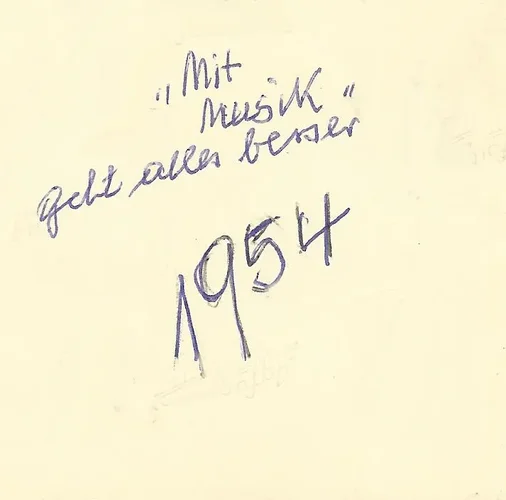 „Mit
Musik"
geht alles besser
1954